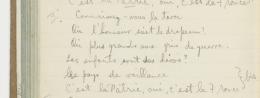 C'est la Patrie, oui, c'est le 7 roice!
3e
Connaissez-vous la terre
Où l'honneur suit le drapeau!
Où plus grands aux jours de guerre.
Les enfants sont des héros?
Le pays de vaillance } bis
C'est la Patrie, oui, c'est la 7 roice